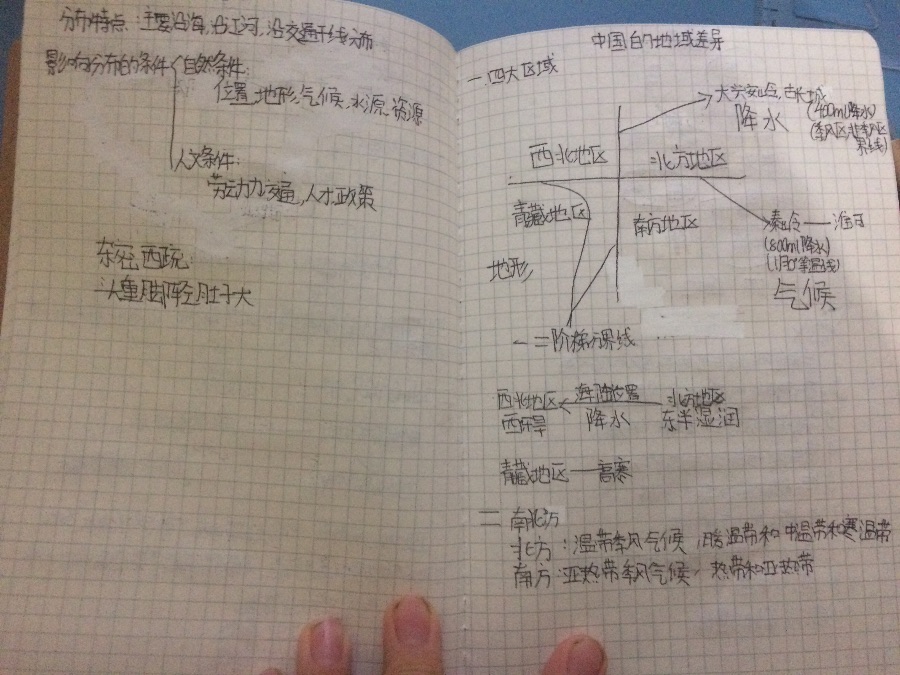 分布特点：主要沿海，沿江河，沿交通干线分布
影响分布的条件
自然条件：
位置，地形，气候，水源，资源
人文条件：
劳动力，交通，人才，政策
东密西疏
头重脚轻肚子大
中国的地域差异
一.四大区域
大兴安岭，古长城
降水
(400ml降水)
(季风区非季风区
界线)
西北地区
北方地区
青藏地区
南方地区
秦岭——淮河
(800ml降水)
地形
气候
一二阶梯分界线
西北地区
海陆位置
北方地区
降水
东半湿润
青藏地区——高寒
二 南北方
北方：温带季风气候，暖温带和中温带和寒温带
南方：亚热带季风气候，热带和亚热带